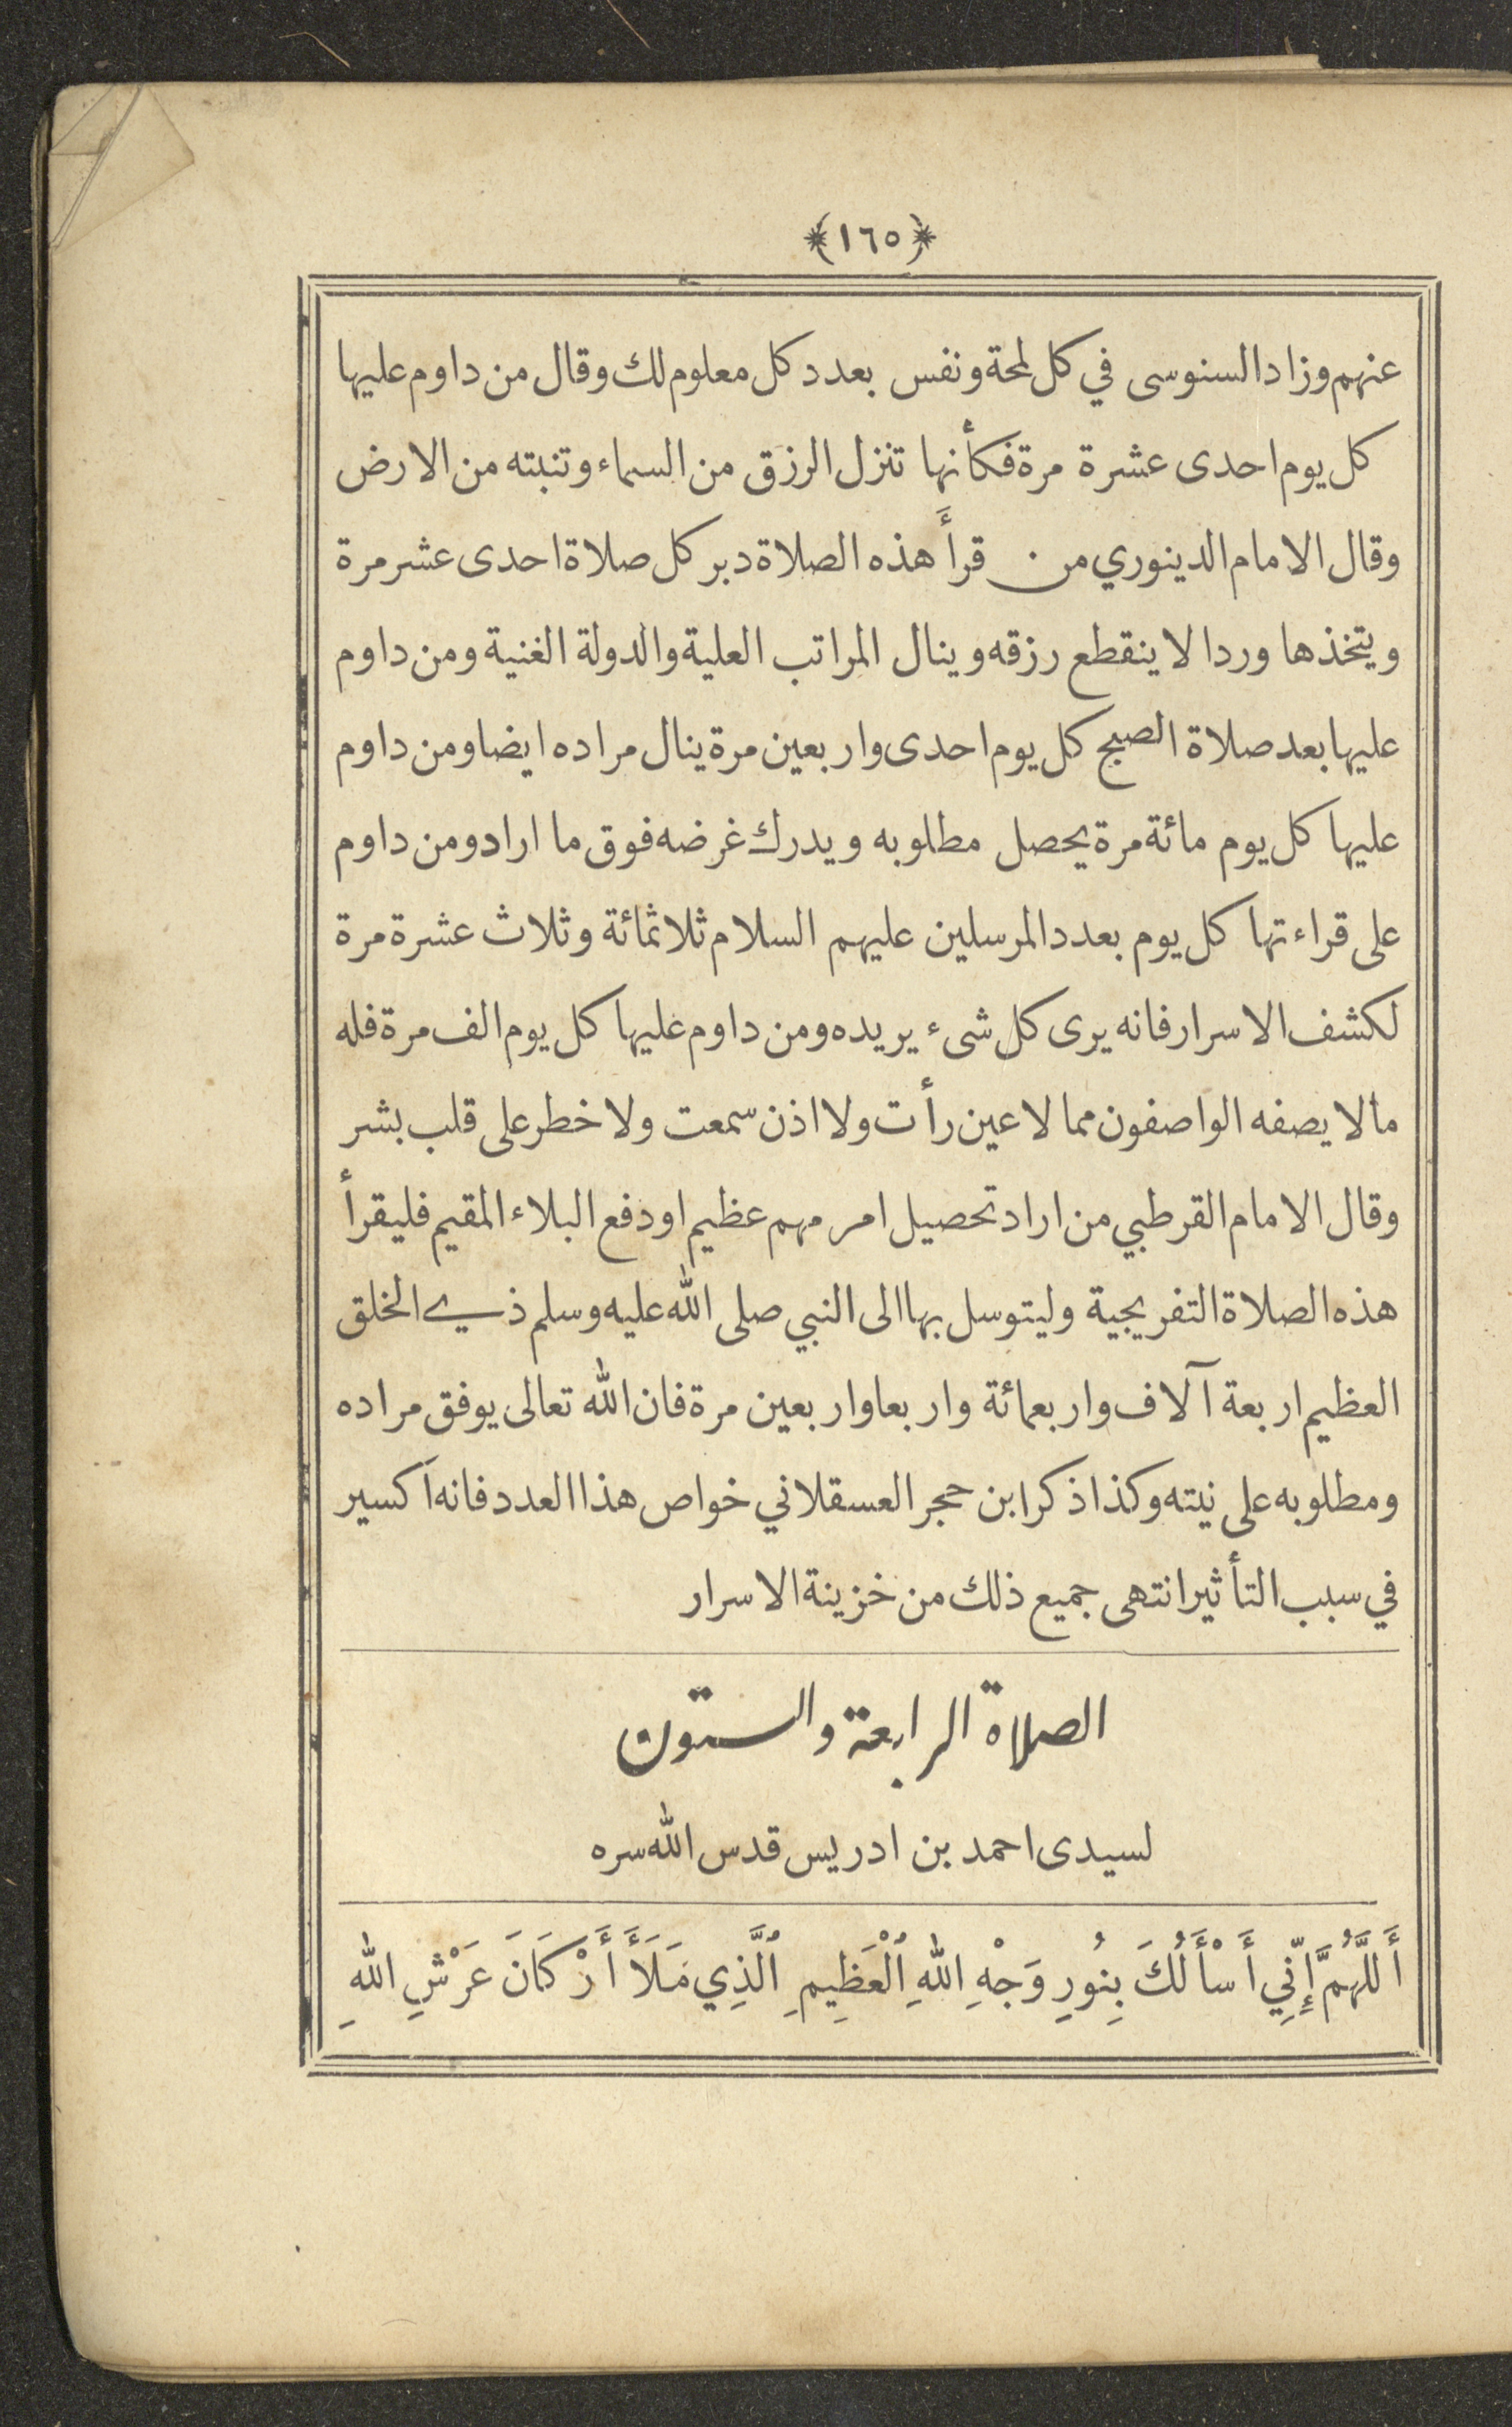 ﴿١٦٥﴾
عنهم وزاد السنوسى في كل لمحة ونفس بعدد كل معلوم لك وقال من داوم عليها
كل يوم احدى عشرة مرة فكأنها تنزل الرزق من السماء وتنبته من الارض
وقال الامام الدينوري من قرأَ هذه الصلاة دبر كل صلاة احدى عشر مرة
ويتخذها وردا لا ينقطع رزقه وينال المراتب العلية والدولة الغنية ومن داوم
عليها بعد صلاة الصبح كل يوم احدى واربعين مرة ينال مراده ايضا ومن داوم
عليها كل يوم مائة مرة يحصل مطلوبه ويدرك غرضه فوق ما اراد ومن داوم
على قراءتها كل يوم بعدد المرسلين عليهم السلام ثلاثمائة وثلاث عشرة مرة
لكشف الاسرار فانه يرى كل شىء يريده ومن داوم عليها كل يوم الف مرة فله
ما لا يصفه الواصفون مما لا عين رأت ولا اذن سمعت ولا خطر على قلب بشر
وقال الامام القرطبي من اراد تحصيل امر مهم عظيم او دفع البلاء المقيم فليقرأ
هذه الصلاة التفريجية وليتوسل بها الى النبي صلى الله عليه وسلم ذي الخلق
العظيم اربعة آلاف واربعمائة واربعا واربعين مرة فان الله تعالى يوفق مراده
ومطلوبه على نيته وكذا ذكر ابن حجر العسقلاني خواص هذا العدد فانه اكسير
في سبب التأثير انتهى جميع ذلك من خزينة الاسرار
الصلاة الرابعة والستون
لسيدى احمد بن ادريس قدس الله سره
أَللَّهُمَّ إِنِّي أَسْأَلُكَ بِنُورِ وَجْهِ اللهِ ٱلْعَظِيمِ ٱلَّذِي مَلَأَ أَرْكَانَ عَرْشِ اللهِ